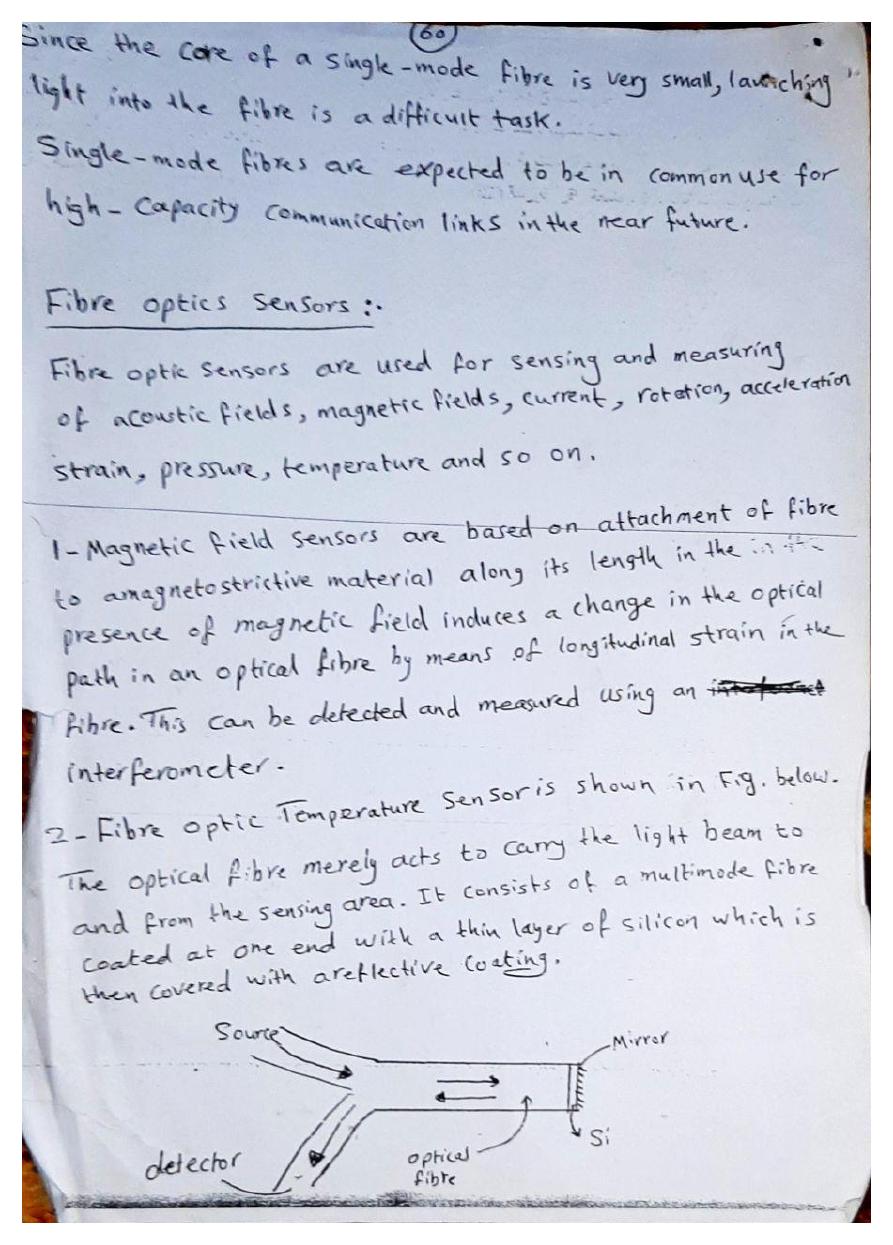 60
Since the core of a single-mode fibre is very small, launching
light into the fibre is a difficult task.
Single-mode fibres are expected to be in common use for
high-capacity communication links in the near future.
Fibre optics Sensors :.
Fibre optic sensors are used for sensing and measuring
of acoustic fields, magnetic fields, current, rotation, acceleration
strain, pressure, temperature and so on.
1- Magnetic field sensors are based on attachment of fibre
to amagnetostrictive material along its length in the
presence of magnetic field induces a change in the optical
path in an optical fibre by means of longitudinal strain in the
fibre. This can be detected and measured using an
interferometer.
2- Fibre optic Temperature Sensor is shown in Fig. below.
The optical fibre merely acts to carry the light beam to
and from the sensing area. It consists of a multimode fibre
coated at one end with a thin layer of silicon which is
then covered with areflective coating.
Source
Mirror
Si
optical
fibre
detector